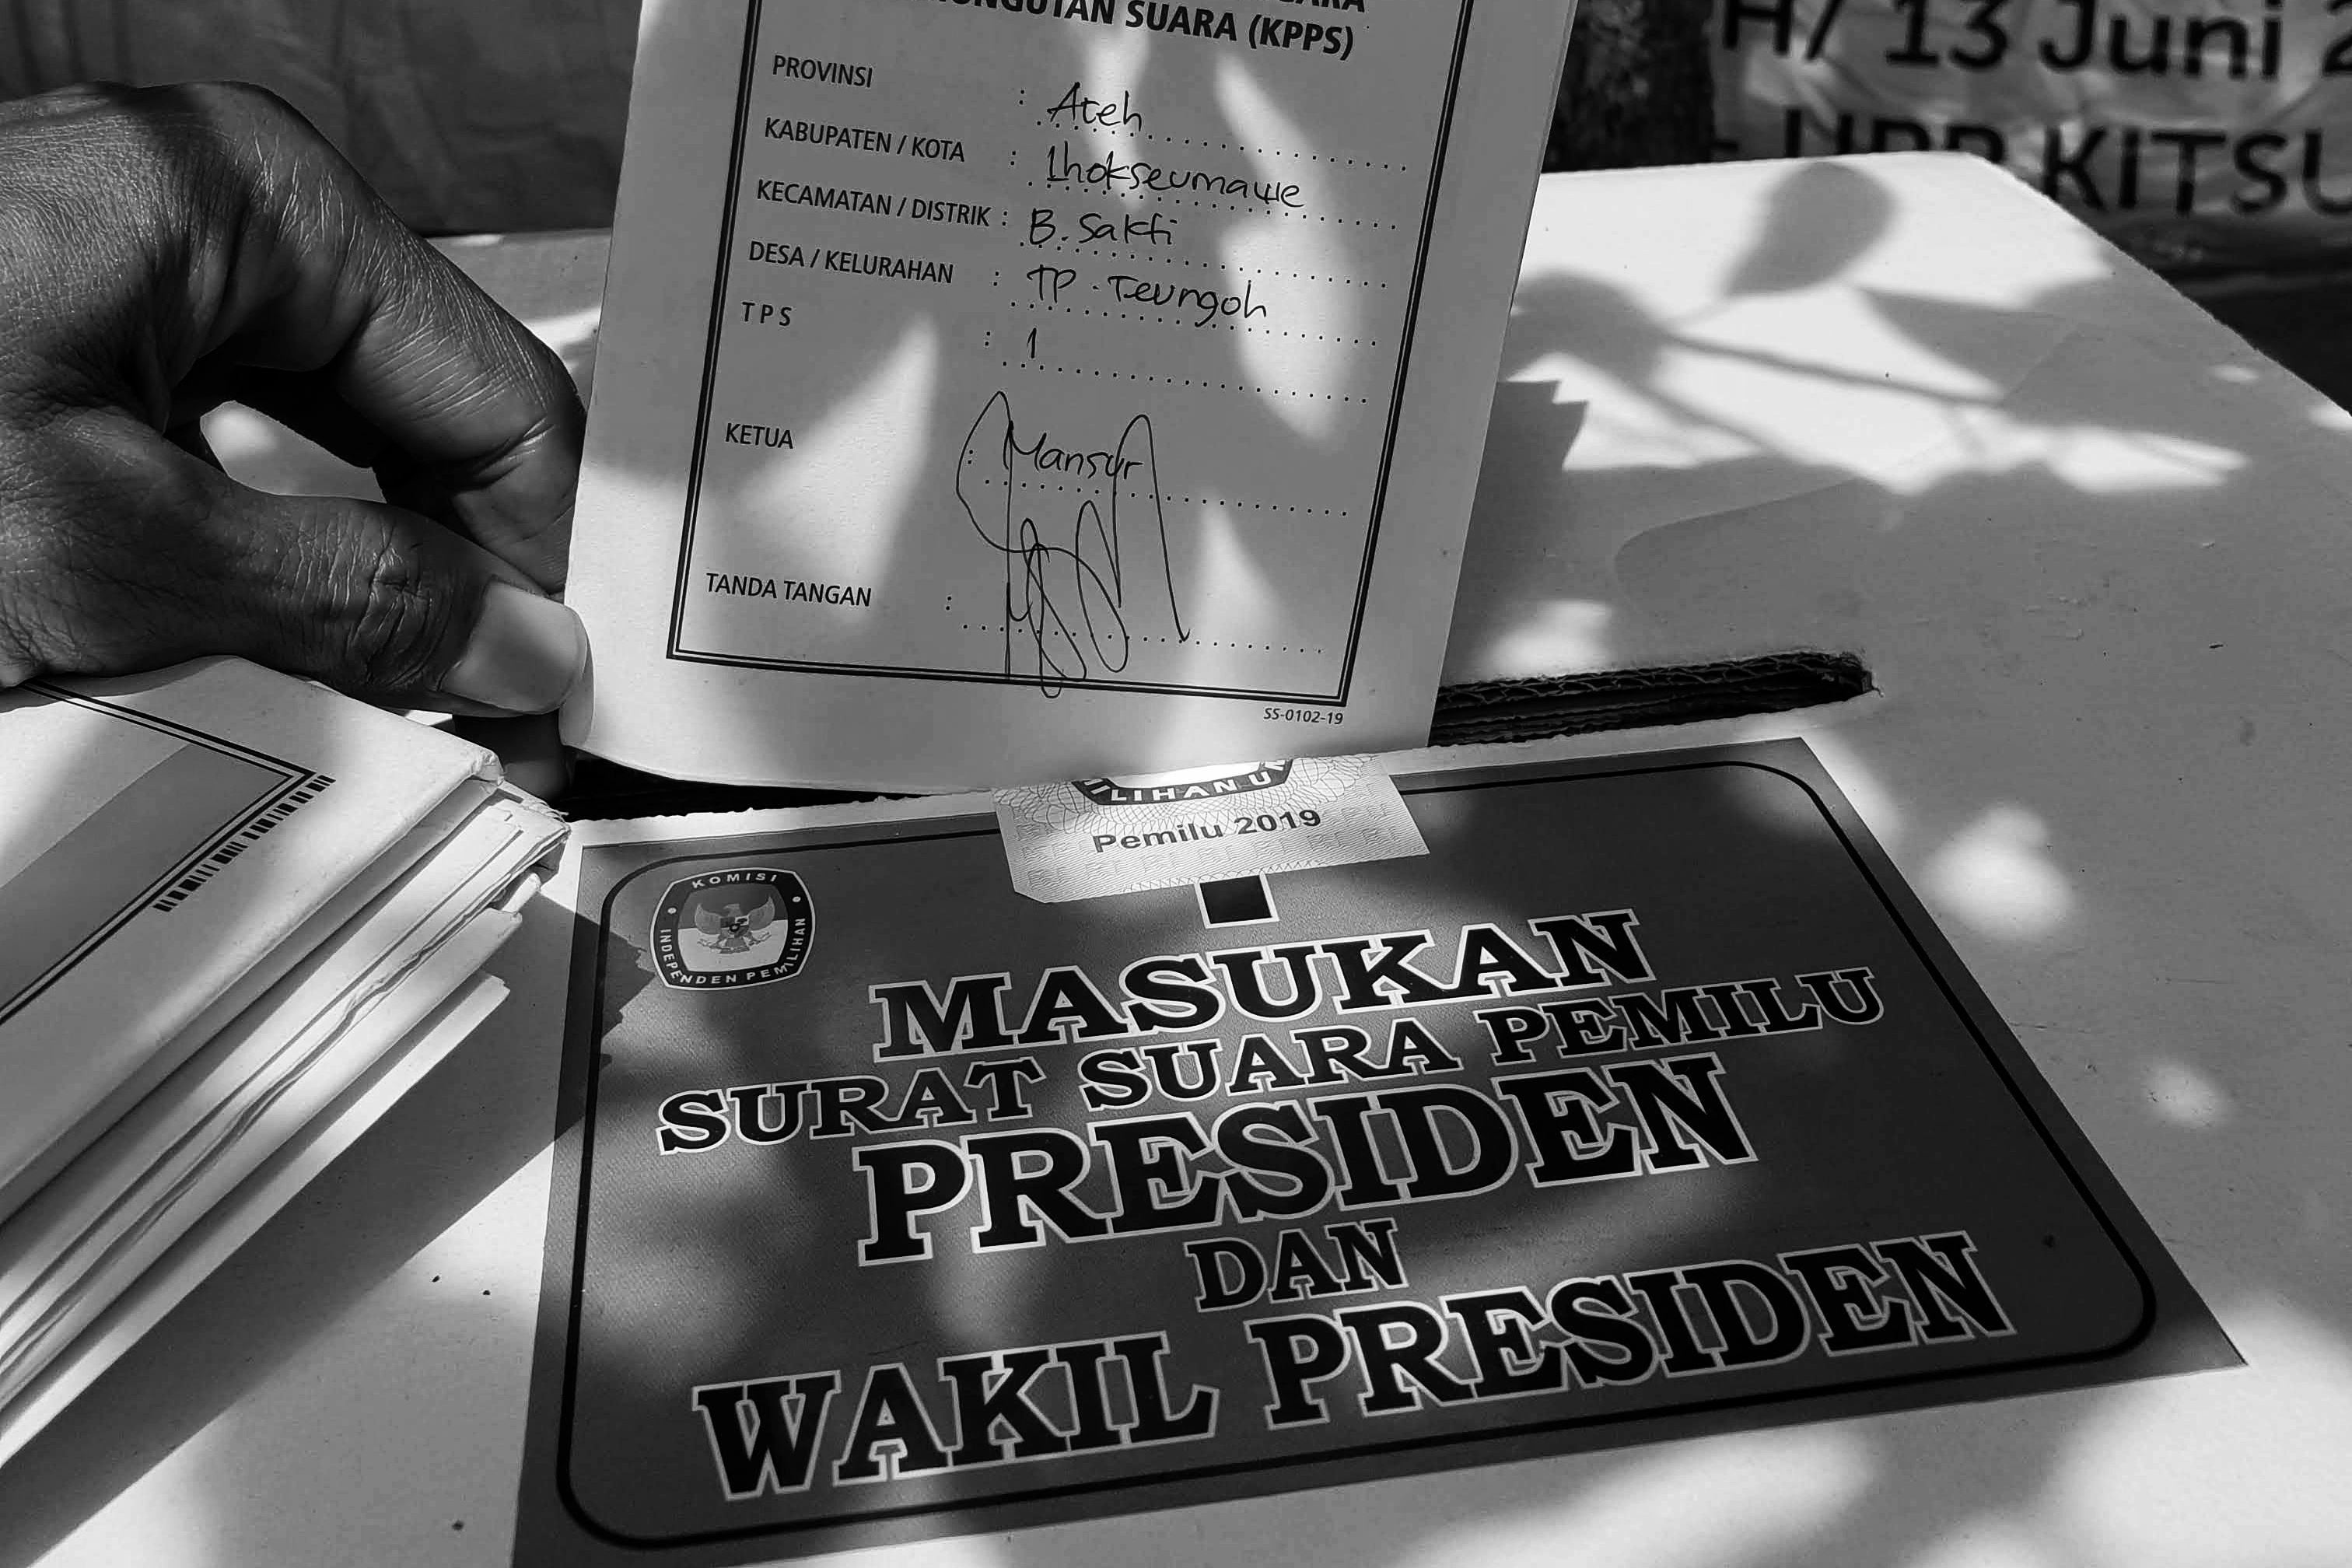 PEMUNGUTAN SUARA (KPPS)
PROVINSI : Aceh
KABUPATEN / KOTA : Lhokseumawe
KECAMATAN / DISTRIK : B. Sakti
DESA / KELURAHAN : TP. Teungoh
TPS : 1
KETUA : Mansur
TANDA TANGAN :
SS-0102-19
H/ 13 Juni 2
KITSU
Pemilu 2019
KOMISI
INDEPENDEN PEMILIHAN
MASUKAN
SURAT SUARA PEMILU
PRESIDEN
DAN
WAKIL PRESIDEN